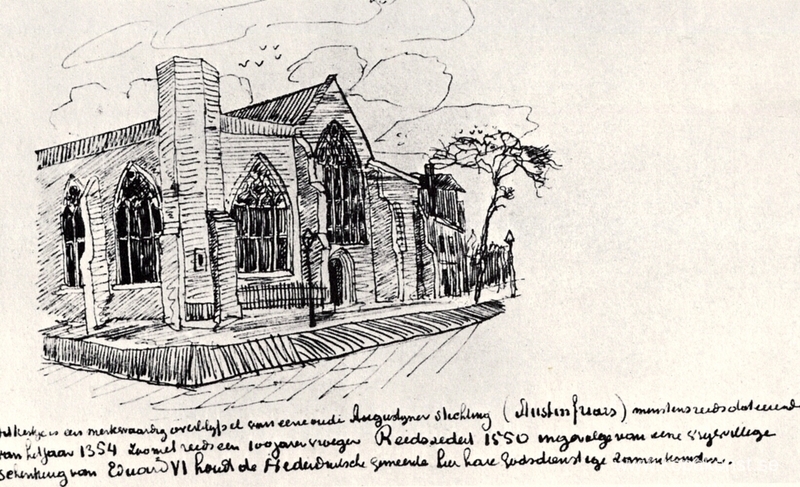 Dit kerkje is een merkwaardig overblijfsel van eene oude Augustyner stichting (Austin friars) minstens reeds dateerend
van het Jaar 1354 zoo niet reeds een 100 jaren vroeger Reeds sedert 1550 ingevolge van eene vrijwillige
schenking van Eduard VI houdt de Nederduitsche gemeente hier hare Godsdienstige zamenkomsten.